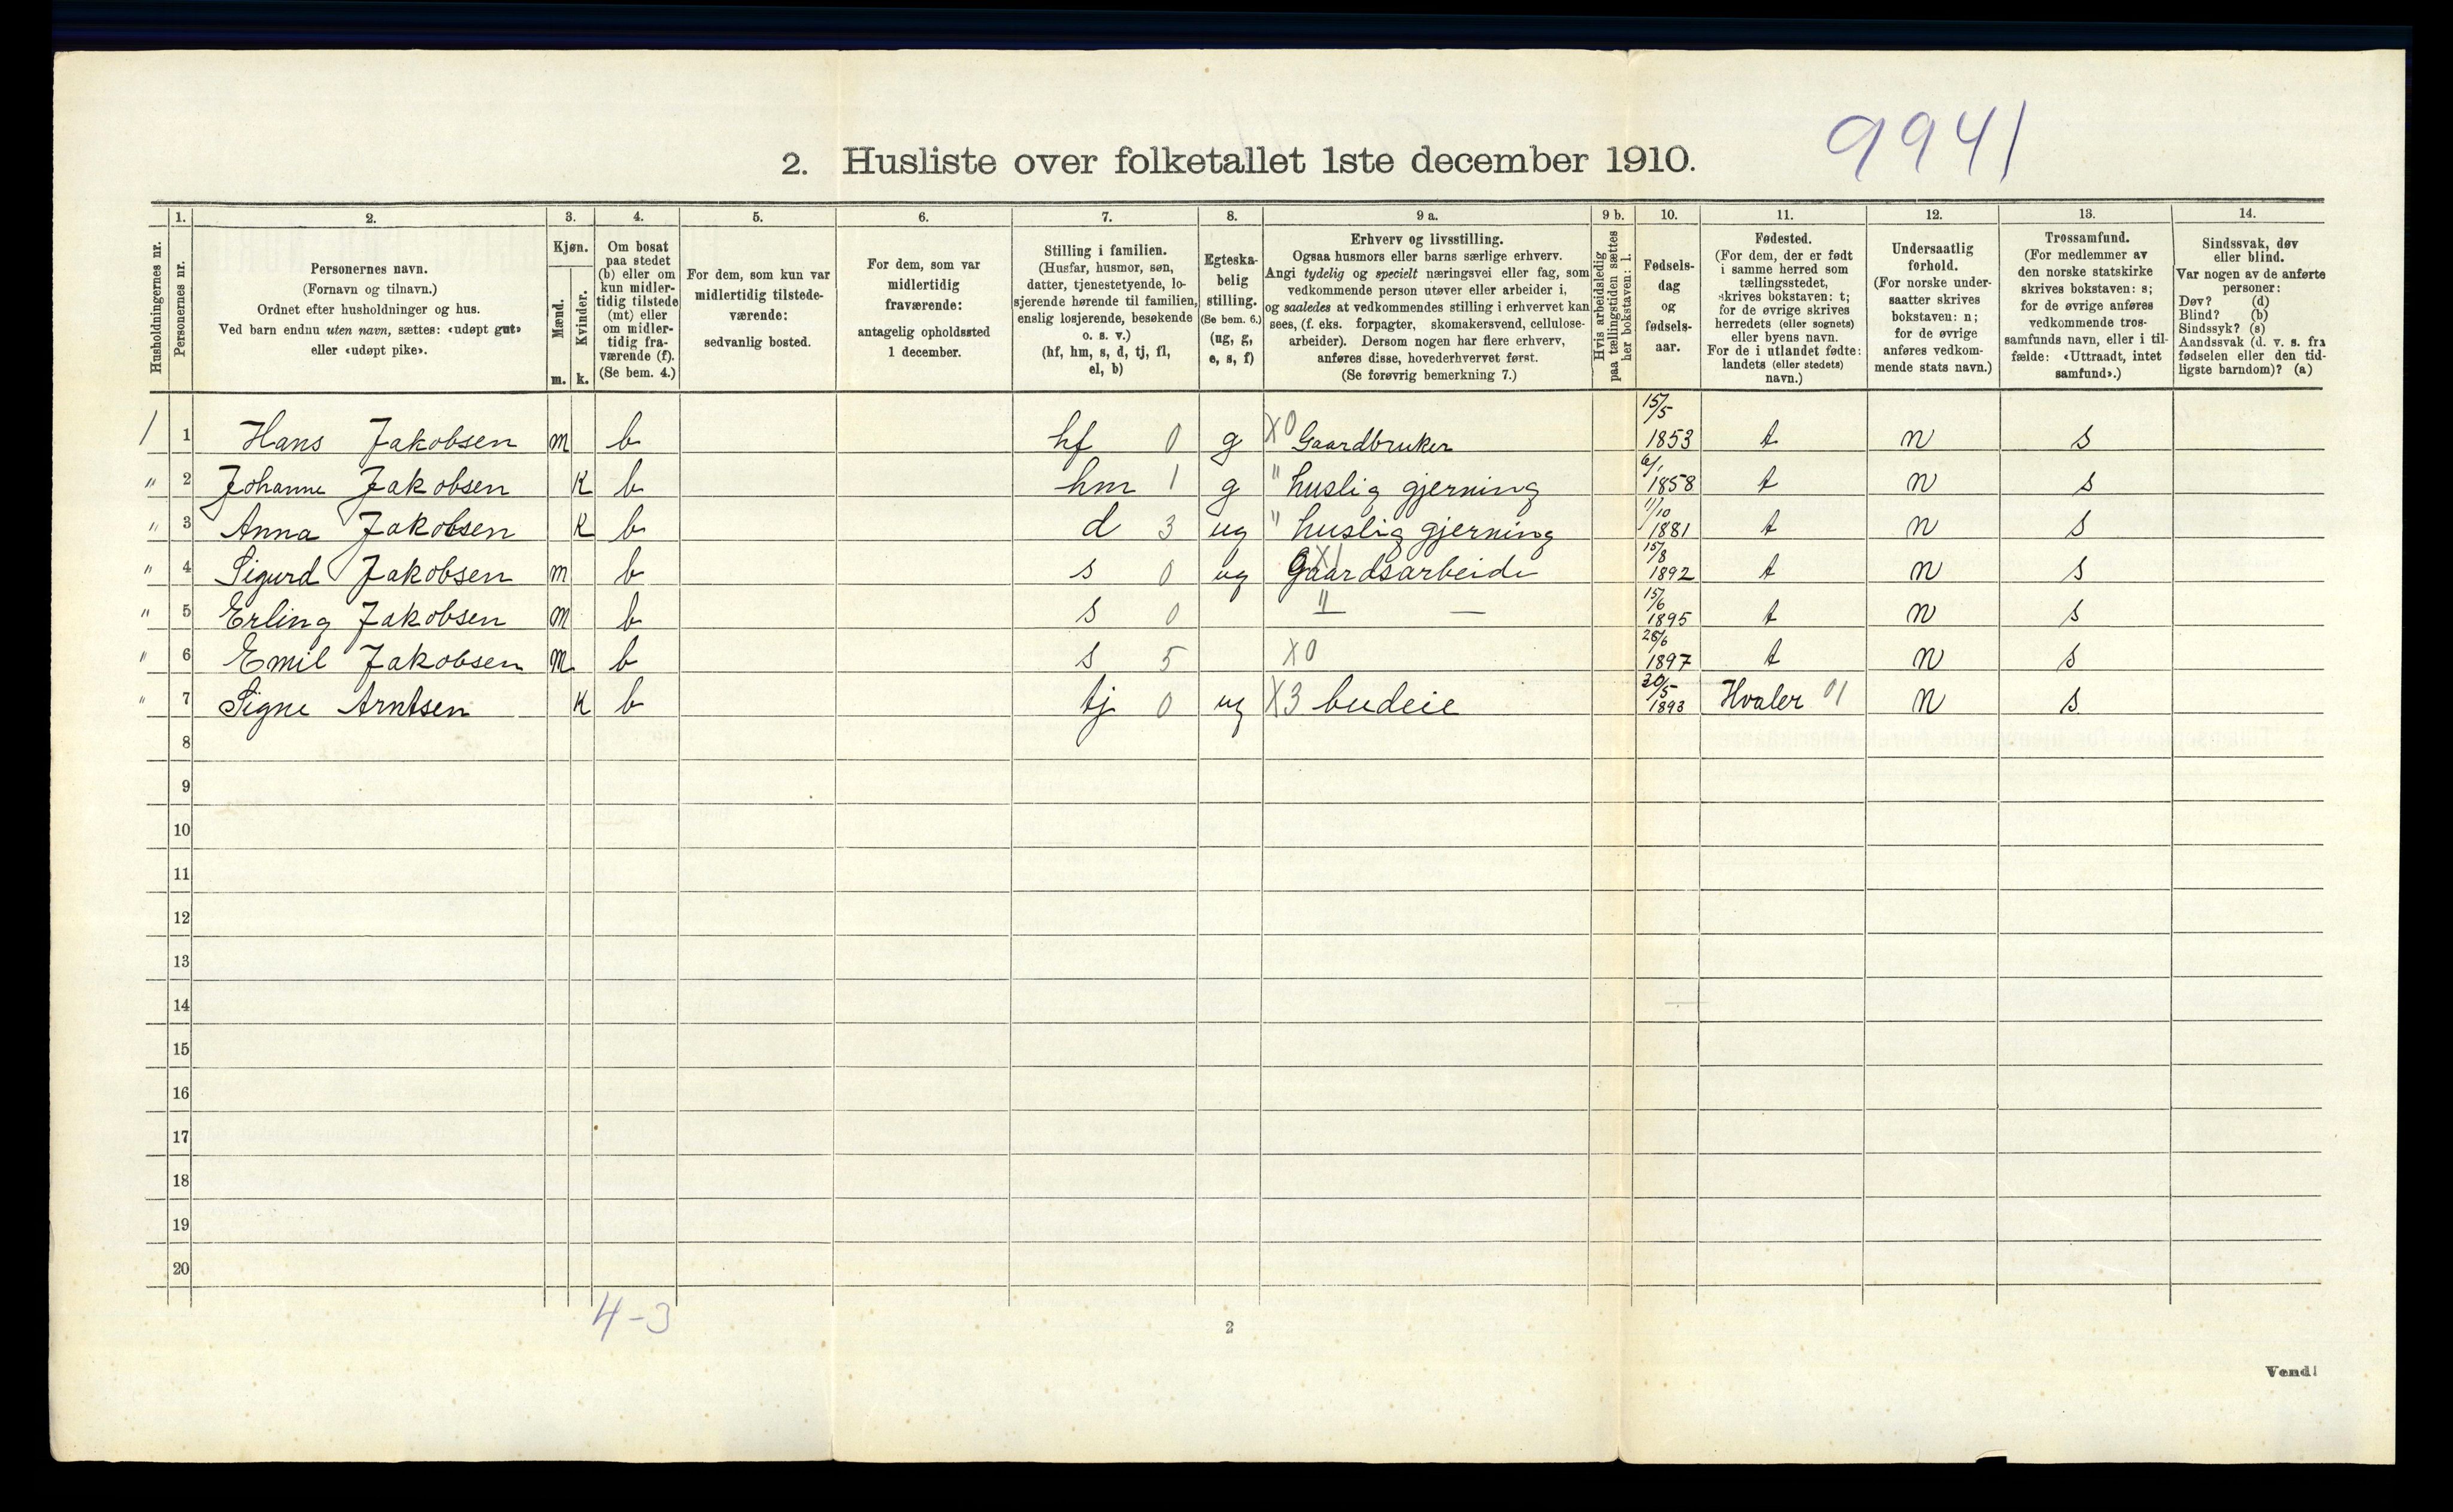 9941
2. Husliste over folketallet 1ste december 1910.
Husholdningernes nr.
1. 2. 3. 4. 5. 6. 7. 8. 9 a. 9 b. 10. 11. 12. 13. 14.
Personernes nr.
Personernes navn.
(Fornavn og tilnavn.)
Ordnet efter husholdninger og hus.
Ved barn endnu uten navn, sættes: «udøpt gut»
eller «udøpt pike».
Kjøn.
Mænd.
Kvinder.
m. k.
Om bosat
paa stedet
(b) eller om
kun midler-
tidig tilstede
(mt) eller
om midler-
tidig fra-
værende (f).
(Se bem. 4.)
For dem, som kun var
midlertidig tilstede-
værende:
sedvanlig bosted.
For dem, som var
midlertidig
fraværende:
antagelig opholdssted
1 december.
Stilling i familien.
(Husfar, husmor, søn,
datter, tjenestetyende, lo-
sjerende hørende til familien,
enslig losjerende, besøkende
o. s. v.)
(hf, hm, s, d, tj, fl,
el, b)
Egteska-
belig
stilling.
(Se bem. 6.)
(ug, g,
e, s, f)
Erhverv og livsstilling.
Ogsaa husmors eller barns særlige erhverv.
Angi tydelig og specielt næringsvei eller fag, som
vedkommende person utøver eller arbeider i,
og saaledes at vedkommendes stilling i erhvervet kan
sees, (f. eks. forpagter, skomakersvend, cellulose-
arbeider). Dersom nogen har flere erhverv,
anføres disse, hovederhvervet først.
(Se forøvrig bemerkning 7.)
Hvis arbeidsledig
paa tællingstiden sættes
her bokstaven: l.
Fødsels-
dag
og
fødsels-
aar.
Fødested.
(For dem, der er født
i samme herred som
tællingsstedet,
skrives bokstaven: t;
for de øvrige skrives
herredets (eller sognets)
eller byens navn.
For de i utlandet fødte:
landets (eller stedets)
navn.)
Undersaatlig
forhold.
(For norske under-
saatter skrives
bokstaven: n;
for de øvrige
anføres vedkom-
mende stats navn.)
Trossamfund.
(For medlemmer av
den norske statskirke
skrives bokstaven: s;
for de øvrige anføres
vedkommende tros-
samfunds navn, eller i til-
fælde: «Uttraadt, intet
samfund».)
Sindssvak, døv
eller blind.
Var nogen av de anførte
personer:
Døv? (d)
Blind? (b)
Sindssyk? (s)
Aandssvak (d. v. s. fra
fødselen eller den tid-
ligste barndom)? (a)
1 1 Hans Jakobsen m b hf 0 g X0 Gaardbruker 15/5 1853 t n s
" 2 Johanne Jakobsen K b hm 1 g " huslig gjerning 6/1 1858 t n s
" 3 Anna Jakobsen K b d 3 ug " huslig gjerning 11/10 1881 t n s
" 4 Sigurd Jakobsen m b s 0 ug X1 Gaardsarbeide 15/8 1892 t n s
" 5 Erling Jakobsen m b s 0 " — 15/6 1895 t n s
" 6 Emil Jakobsen m b s 5 X0 28/6 1897 t n s
" 7 Signe Arntsen K b tj 0 ug X3 budeie 30/5 1893 Hvaler 01 n s
8
9
10
11
12
13
14
15
16
17
18
19
20
4-3
2
Vend!